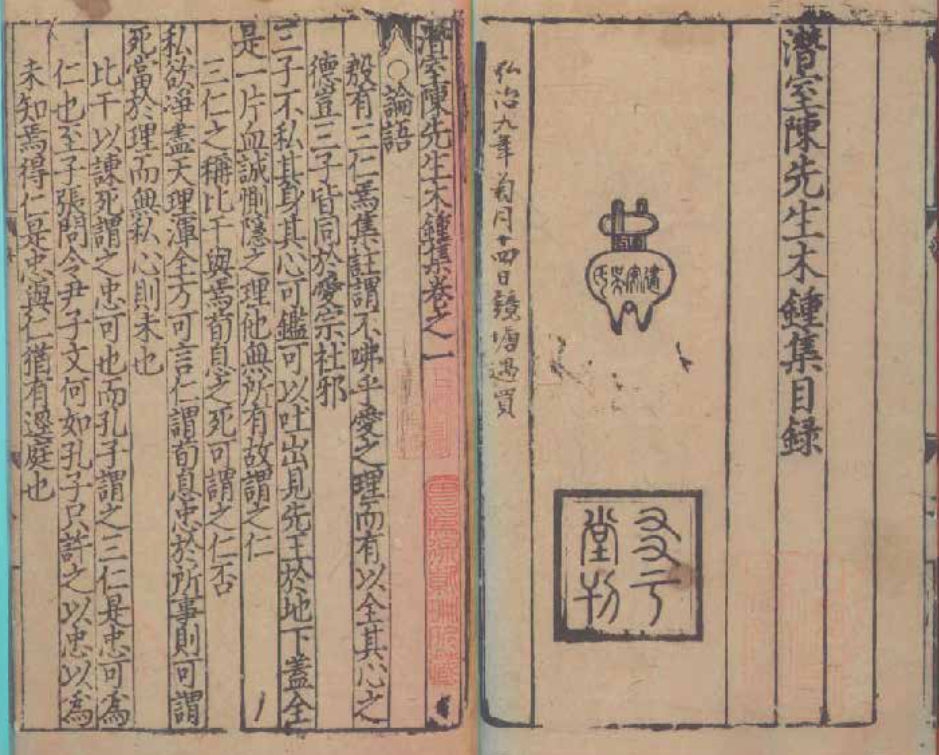 潛室陳先生木鍾集目録
弘治九年菊月十四日錢塘過買
建安吳氏
友于
堂刊
潛室陳先生木鍾集卷之一
○論語
殷有三仁焉集註謂不咈乎愛之理而有以全其心之
德豈三子皆同於愛宗社邪
三子不私其身其心可鑑可以吐出見先王於地下蓋全
是一片血誠惻隱之理他無所有故謂之仁
三仁之稱比干與焉荀息之死可謂之仁否
私欲淨盡天理渾全方可言仁謂荀息忠於所事則可謂
死當於理而無私心則未也
比干以諫死謂之忠可也而孔子謂之三仁是忠可為
仁也至子張問令尹子文何如孔子只許之以忠以為
未知焉得仁是忠與仁猶有逕庭也